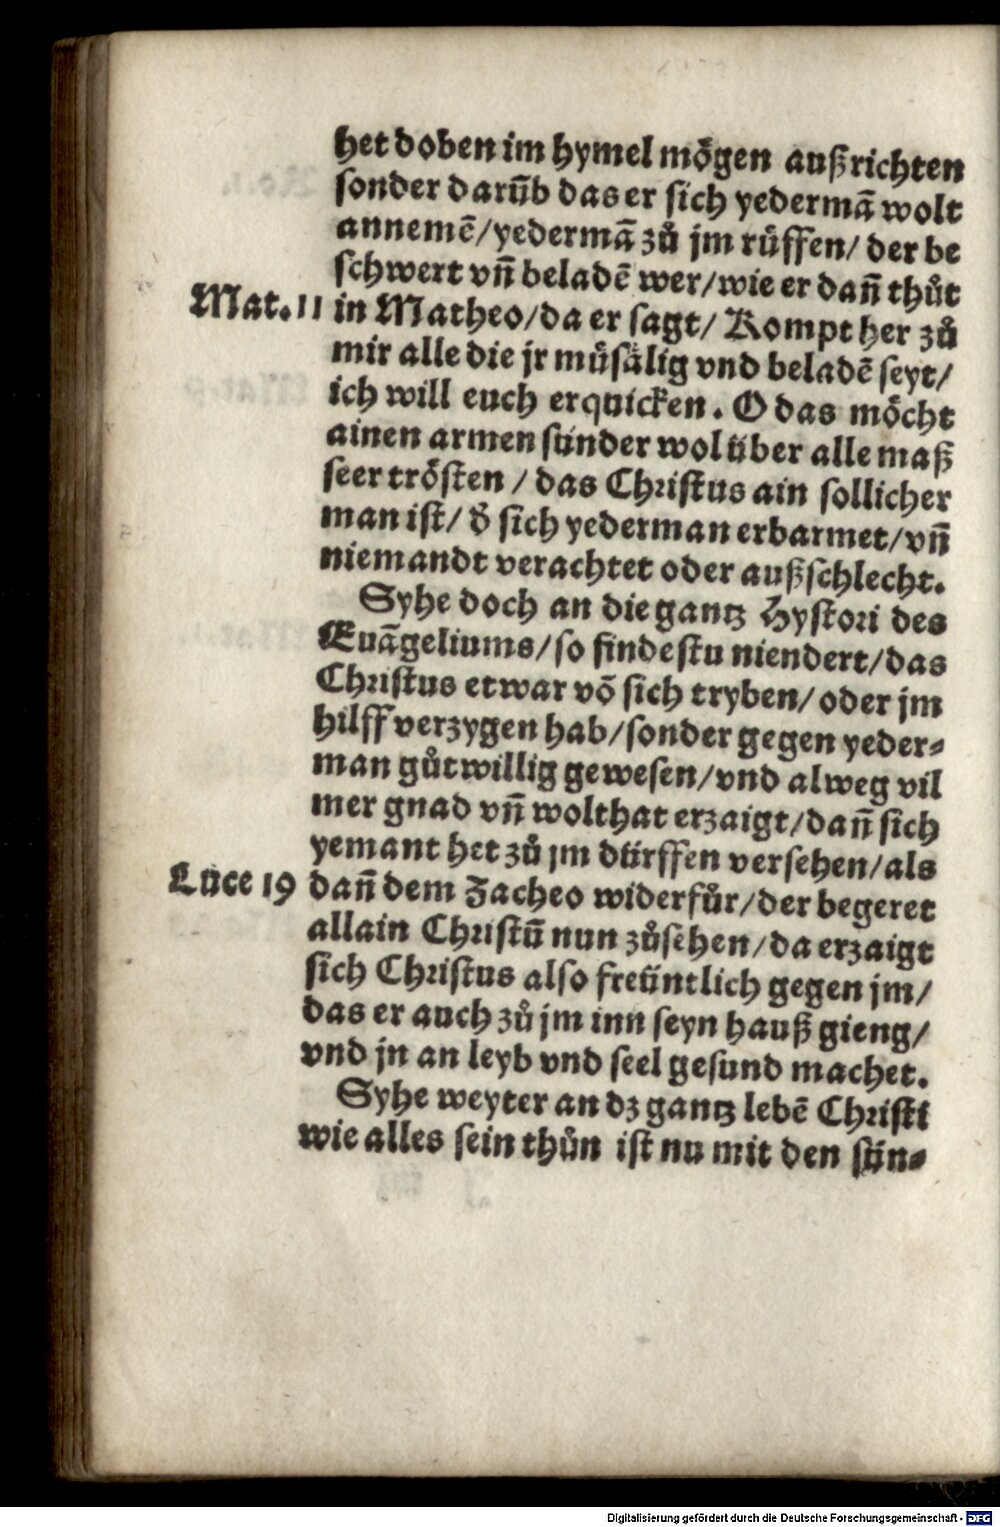 het doben im hymel mögen außrichten
sonder darūb das er sich yedermā wolt
annemē/yedermā zů jm rüffen/ der be
schwert vn̄ beladē wer/wie er dan̄ thůt
Mat. 11 in Matheo/da er sagt/ Kompt her zů
mir alle die jr müsälig vnd beladē seyt/
ich will euch erquicken. O das möcht
ainen armen sünder wol über alle maß
seer trösten / das Christus ain sollicher
man ist/ d̓ sich yederman erbarmet/vn̄
niemandt verachtet oder außschlecht.
Syhe doch an die gantz Hystori des
Euāgeliums/so findestu niendert/das
Christus etwar vō sich tryben/ oder jm
hilff verzygen hab/sonder gegen yeder-
man gůtwillig gewesen/vnd alweg vil
mer gnad vn̄ wolthat erzaigt/dan̄ sich
yemant het zů jm dürffen versehen/als
Luce 19 dan̄ dem Zacheo widerfůr/der begeret
allain Christū nun zůsehen/da erzaigt
sich Christus also freüntlich gegen jm/
das er auch zů jm inn seyn hauß gieng/
vnd jn an leyb vnd seel gesund machet.
Syhe weyter an dz gantz lebē Christi
wie alles sein thůn ist nu mit den sün-
Digitalisierung gefördert durch die Deutsche Forschungsgemeinschaft - DFG